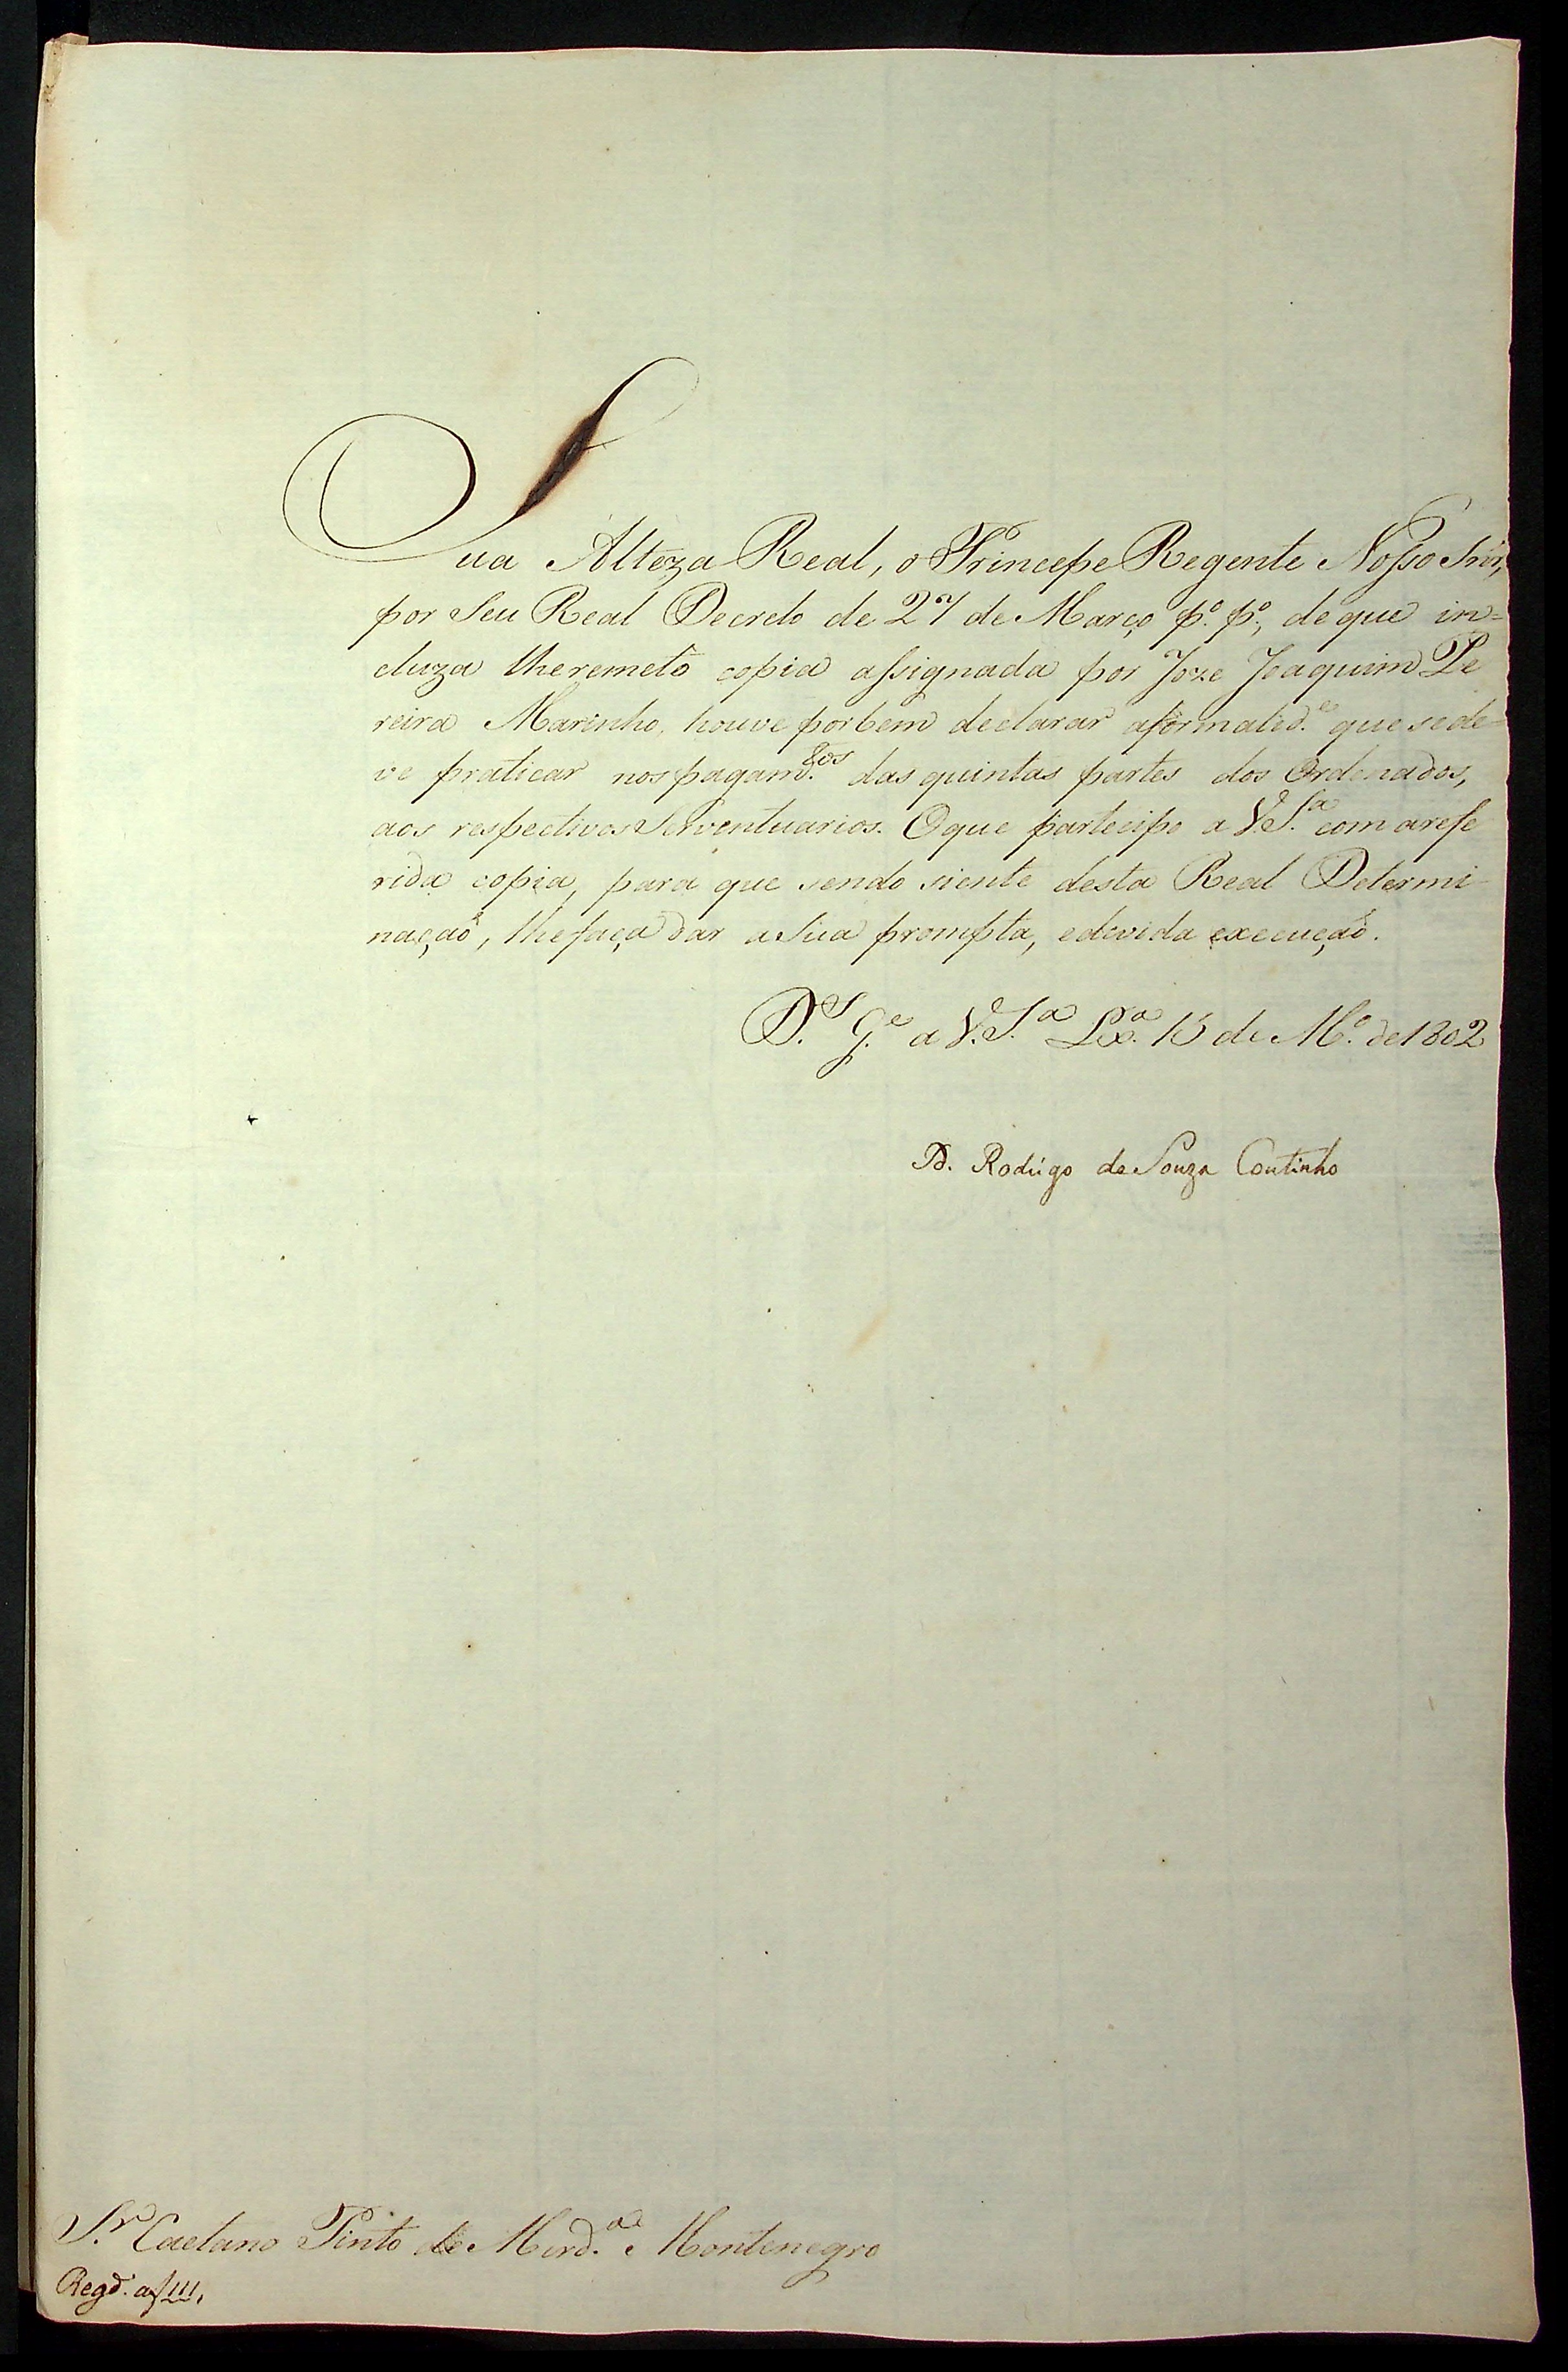 Sua Alteza Real, o Principe Regente Nosso Snr,
por Seu Real Decreto de 27 de Março p.º p.º, de que in=
cluza lheremeto copia assignada por Joze Joaquim Pe
reira Marinho, houve porbem declarar aformalid.e que sede=
ve praticar nospagam.tos das quintas partes dos Ordenados,
aos respectivos Serventuarios. Oque partecipo a V.S.ª com arefe
rida copia, para que sendo siente desta Real Determi-
naçaõ, lhefaça dar a Sua prompta, edevida execuçaõ.
D.s G.e a V.S.ª Lx.ª 15 de M.º de 1802
D. Rodrigo de Souza Coutinho
S.r Caetano Pinto de Mird.ª Montenegro
Regd.º af 111,